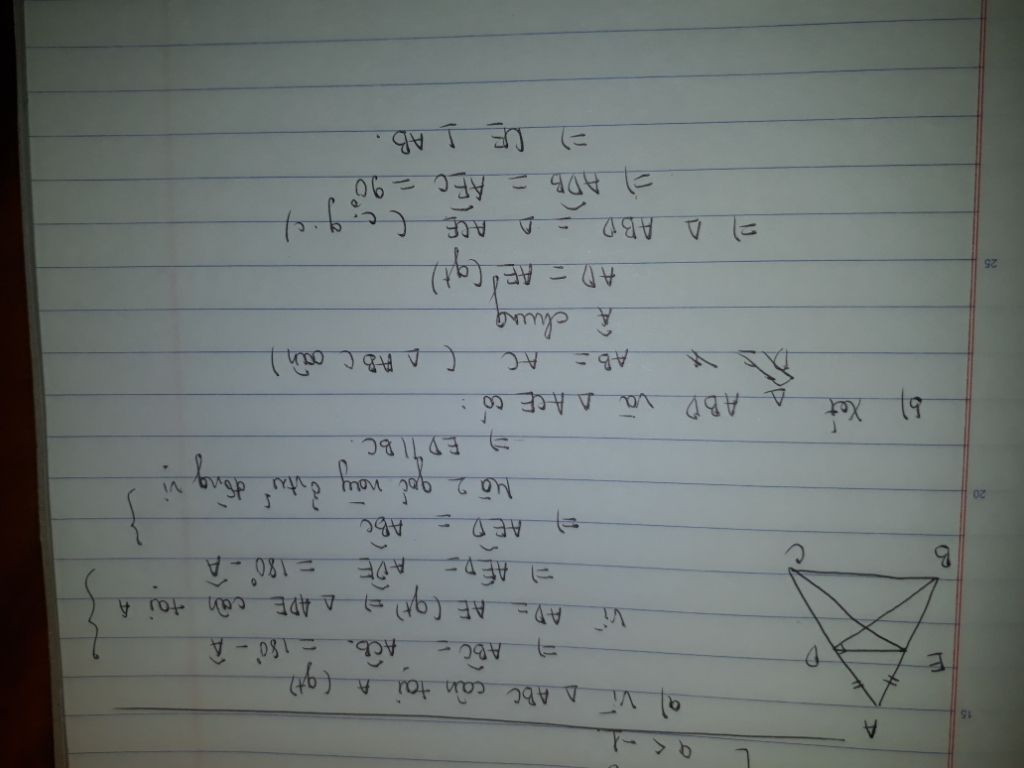 [ a < -1.
15
a) Vì Δ ABC cân tại A (gt)
=) ABC^ = ACB^. = 180° - A^
Vì AD = AE (gt) =) Δ ADE cân tại A
=) AED^ = ADE^ = 180° - A^
=) AED^ = ABC^
Mà 2 góc này ở trí đồng vị.
=) ED // BC.
b) Xét Δ ABD và Δ ACE có:
AB = AC ( Δ ABC cân)
A^ chung
AD = AE (gt)
=) Δ ABD = Δ ACE ( c. g. c)
=) ADB^ = AEC^ = 90°
=) CE ⊥ AB.
A
E
D
B
C
20
25